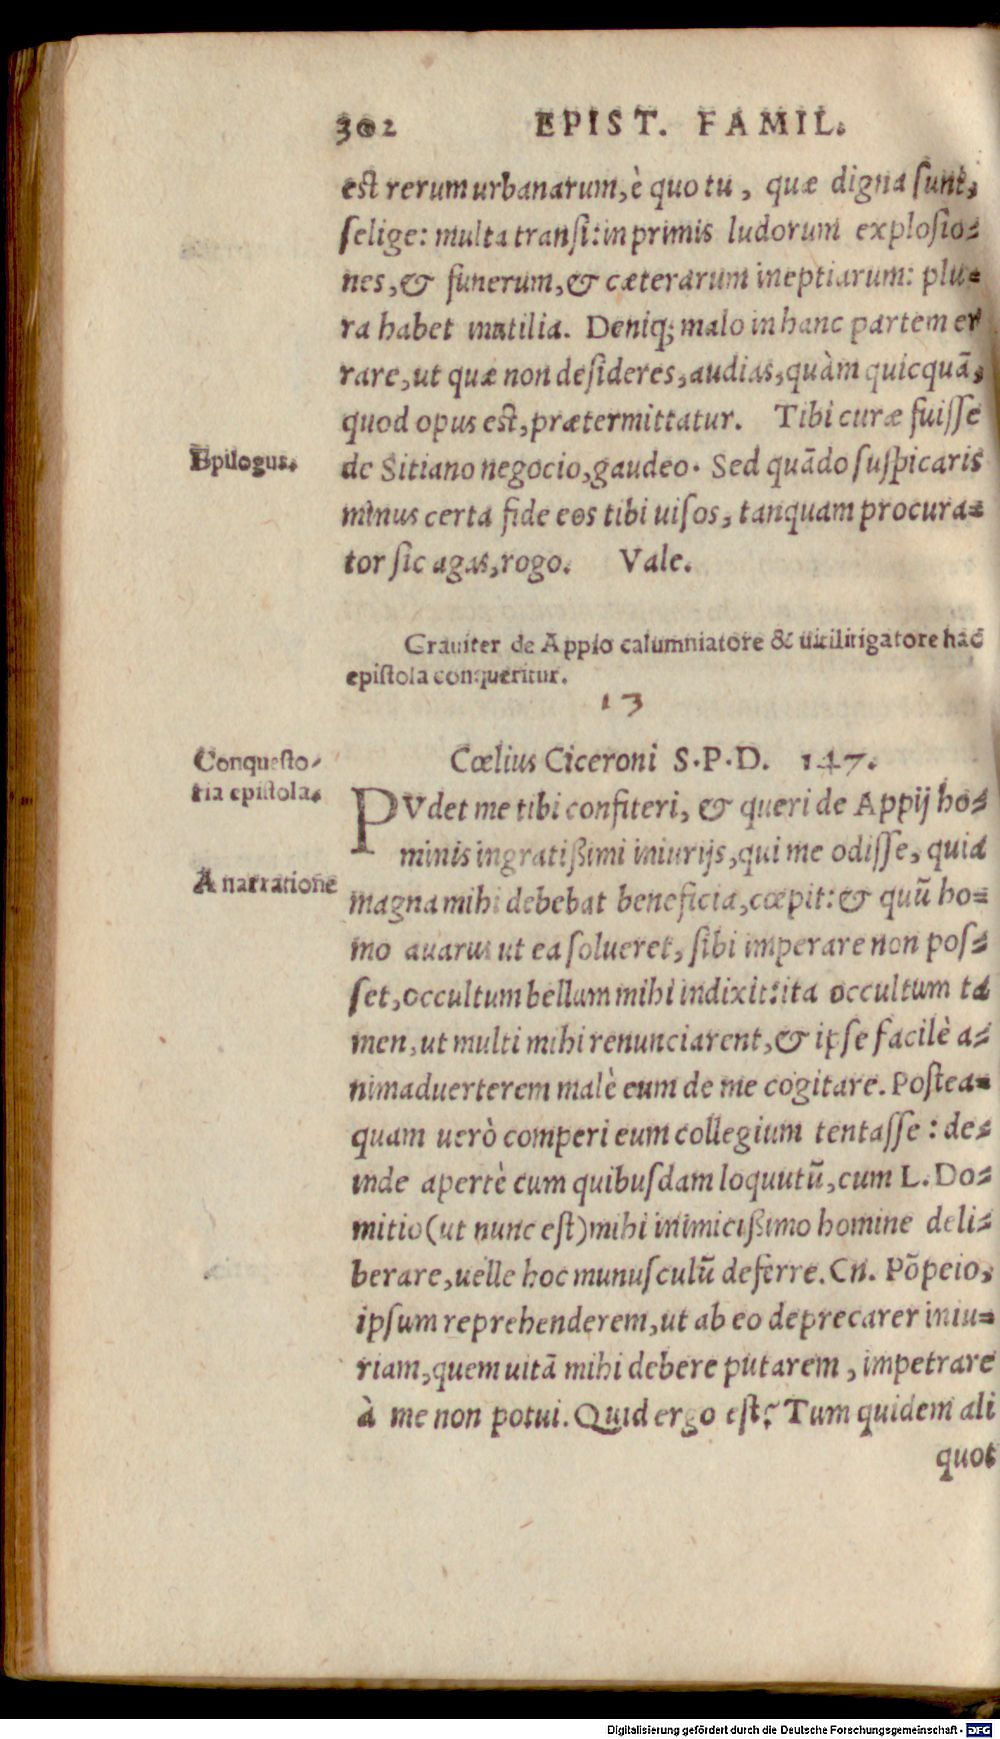 302 EPIST. FAMIL.
est rerum urbanarum, è quo tu, quæ digna sunt,
selige: multa transi: in primis ludorum explosio-
nes, & funerum, & cæterarum ineptiarum: plu-
ra habet inutilia. Deniq; malo in hanc partem er
rare, ut quæ non desideres, audias, quàm quicquā,
quod opus est, prætermittatur. Tibi curæ fuisse
Epilogus.
de Sitiano negocio, gaudeo. Sed quādo suspicaris
minus certa fide eos tibi uisos, tanquam procura-
tor sic agas, rogo. Vale.
Grauiter de Appio calumniatore & uitilitigatore hac
epistola conqueritur.
13
Conquesto-
ria epistola.
Cœlius Ciceroni S.P.D. 147.
PVdet me tibi confiteri, & queri de Appij ho-
minis ingratißimi iniurijs, qui me odisse, quia
A narratione
magna mihi debebat beneficia, cœpit: & quū ho-
mo auarus ut ea solueret, sibi imperare non pos-
set, occultum bellum mihi indixit: ita occultum ta
men, ut multi mihi renunciarent, & ipse facilè a-
nimaduerterem malè eum de me cogitare. Postea-
quam uerò comperi eum collegium tentasse: de-
inde apertè cum quibusdam loquutū, cum L. Do-
mitio (ut nunc est) mihi inimicißimo homine deli-
berare, uelle hoc munusculū deferre. Cn. Põpeio,
ipsum reprehenderem, ut ab eo deprecarer iniu-
riam, quem uitā mihi debere putarem, impetrare
à me non potui. Quid ergo est? Tum quidem ali
quot
Digitalisierung gefördert durch die Deutsche Forschungsgemeinschaft - DFG